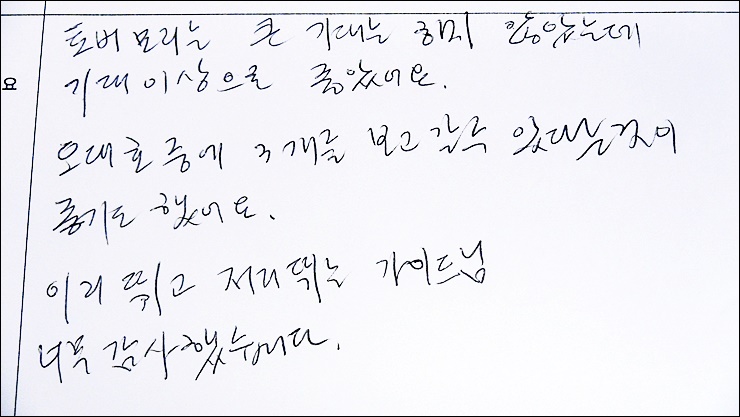 토버모리는 큰 기대는 하지 않았는데
요
기대이상으로 좋았어요.
오대호 중에 3개를 보고 갈수 있다는것이
좋기도 했어요.
이리 뛰고 저리뛰는 가이드님
너무 감사했습니다.